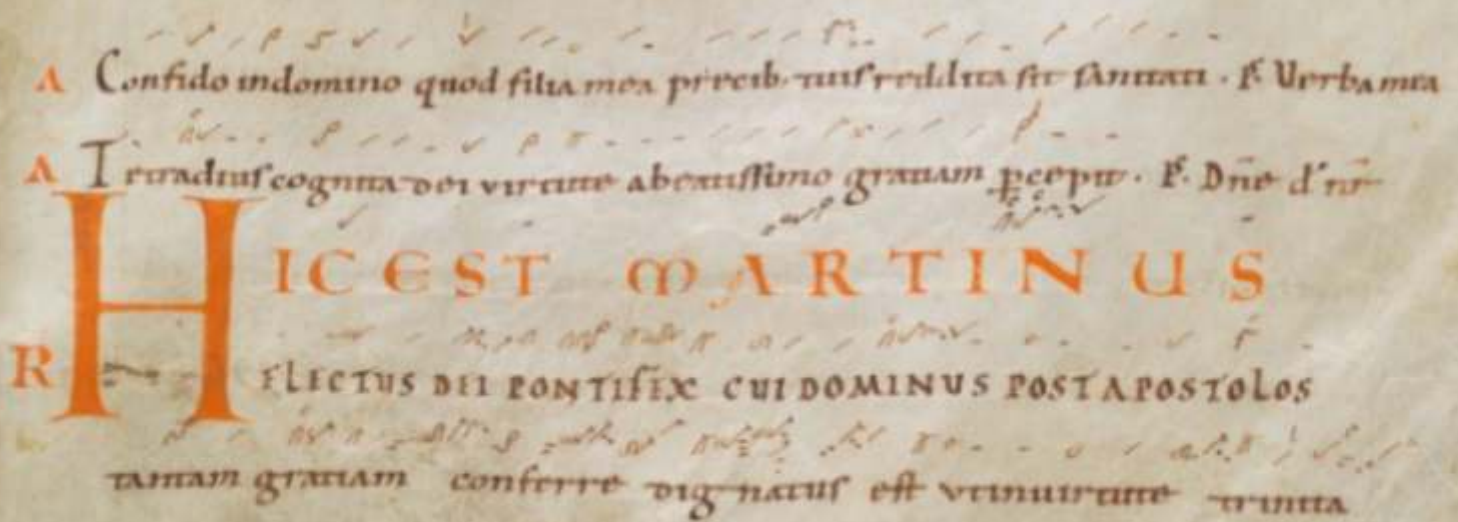 A Confido in domino quod filia mea precib. tuis reddita sit sanitati . Ps. Verba mea
A Tetradius cognita dei virtute a beatissimo gratiam p̲cepit . Ps. Dn̄e d's nr̄
HIC EST MARTINUS
R ELECTUS DEI PONTIFEX CUI DOMINUS POST APOSTOLOS
tantam gratiam conferre dignatus est ut in virtute trinita